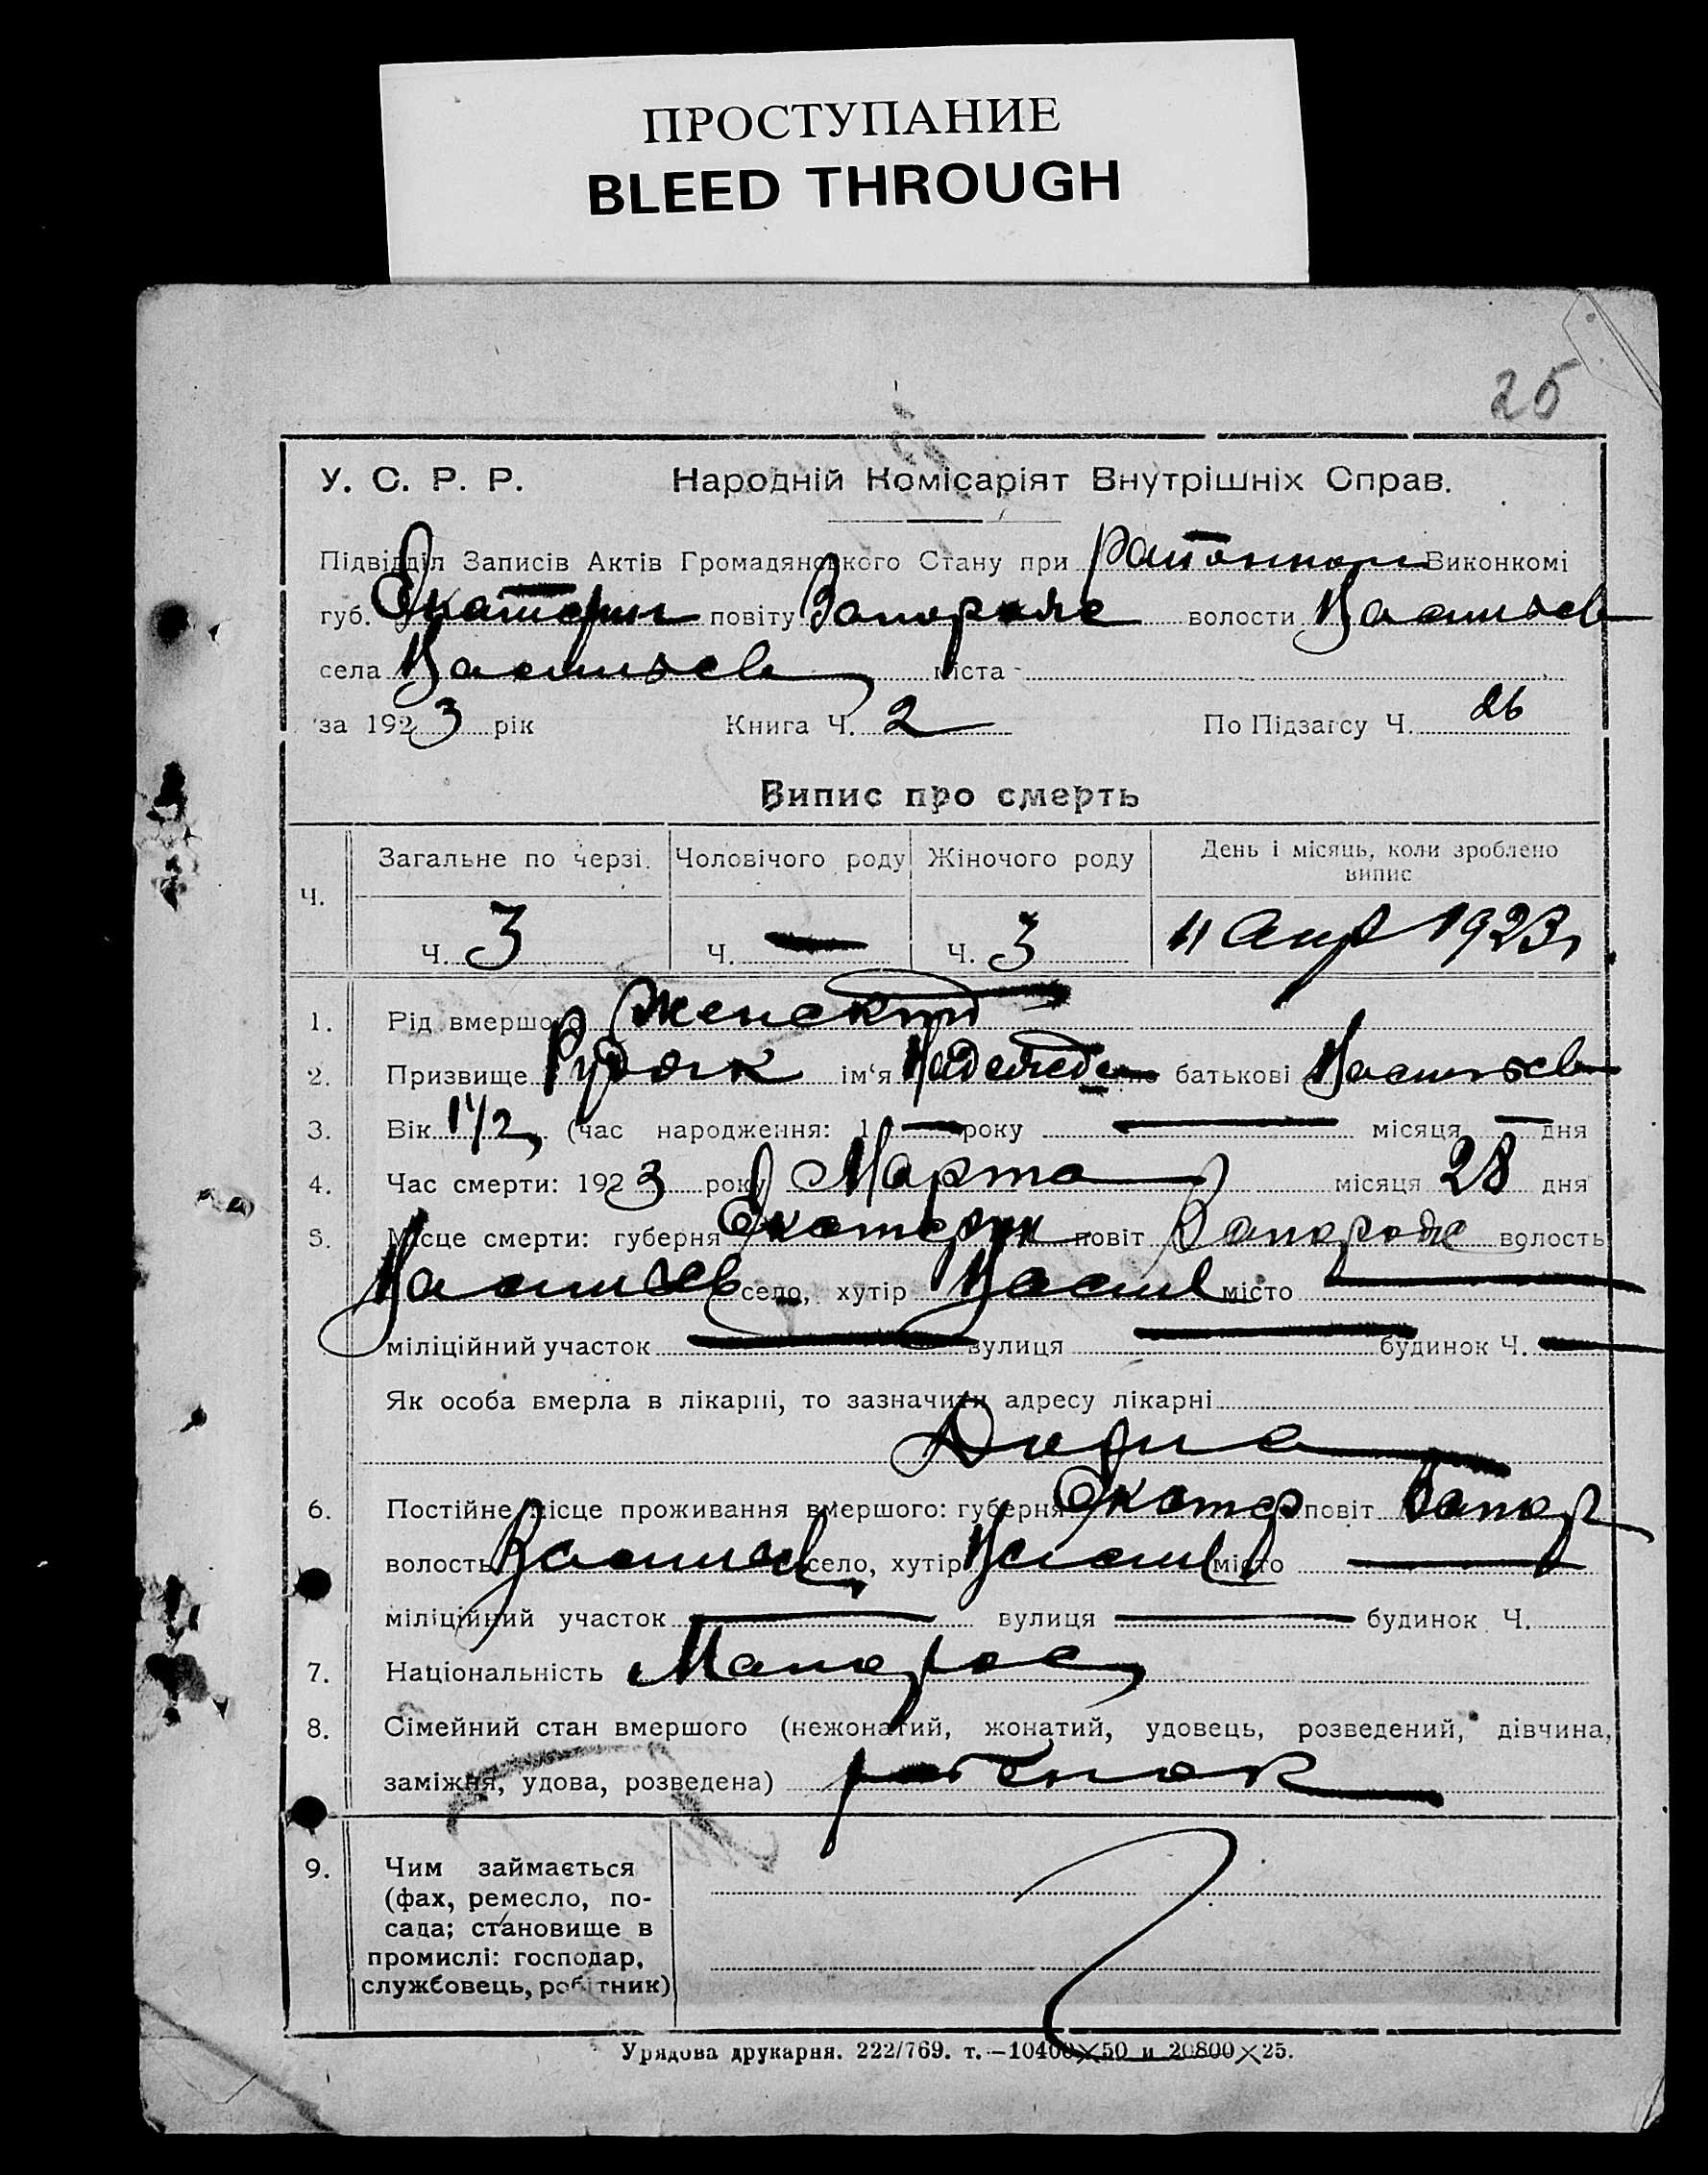 ПРОСТУПАНИЕ
BLEED THROUGH
25
У. С. Р. Р. Народній Комісаріят Внутрішніх Справ.
Підвідділ Записів Актів Громадянського Стану при Районном Виконкомі
губ. Екатерин повіту Запорож волости Васильев
села Васильев міста
за 1923 рік Книга Ч. 2 По Підзагсу Ч. 26
Випис про смерть
Ч. Загальне по черзі. Чоловічого роду Жіночого роду День і місяць, коли зроблено
випис
Ч. 3 Ч. — Ч. 3 11 Апр 1923 г
1. Рід вмершого Женский
2. Призвище Рудяк ім‘я Надежда по батькові Васильев
3. Вік 1 1/2, (час народження: 1 — року — місяця — дня
4. Час смерти: 1923 року Марта місяця 28 дня
5. Місце смерти: губерня Екатерин повіт Запорож волость
Васильев село, хутір Васил місто —
міліційний участок — вулиця — будинок Ч. —
Як особа вмерла в лікарні, то зазначити адресу лікарні
Дома
6. Постійне місце проживання вмершого: губерня Екатер повіт Запор
волость Васильев село, хутір Васил місто —
міліційний участок — вулиця — будинок Ч.
7. Національність Малорос
8. Сімейний стан вмершого (нежонатий, жонатий, удовець, розведений, дівчина,
заміжня, удова, розведена) ребенок
9. Чим займається
(фах, ремесло, по-
сада; становище в
промислі: господар,
службовець, робітник)
Урядова друкарня. 222/769. т.—10400×50 и 20800×25.